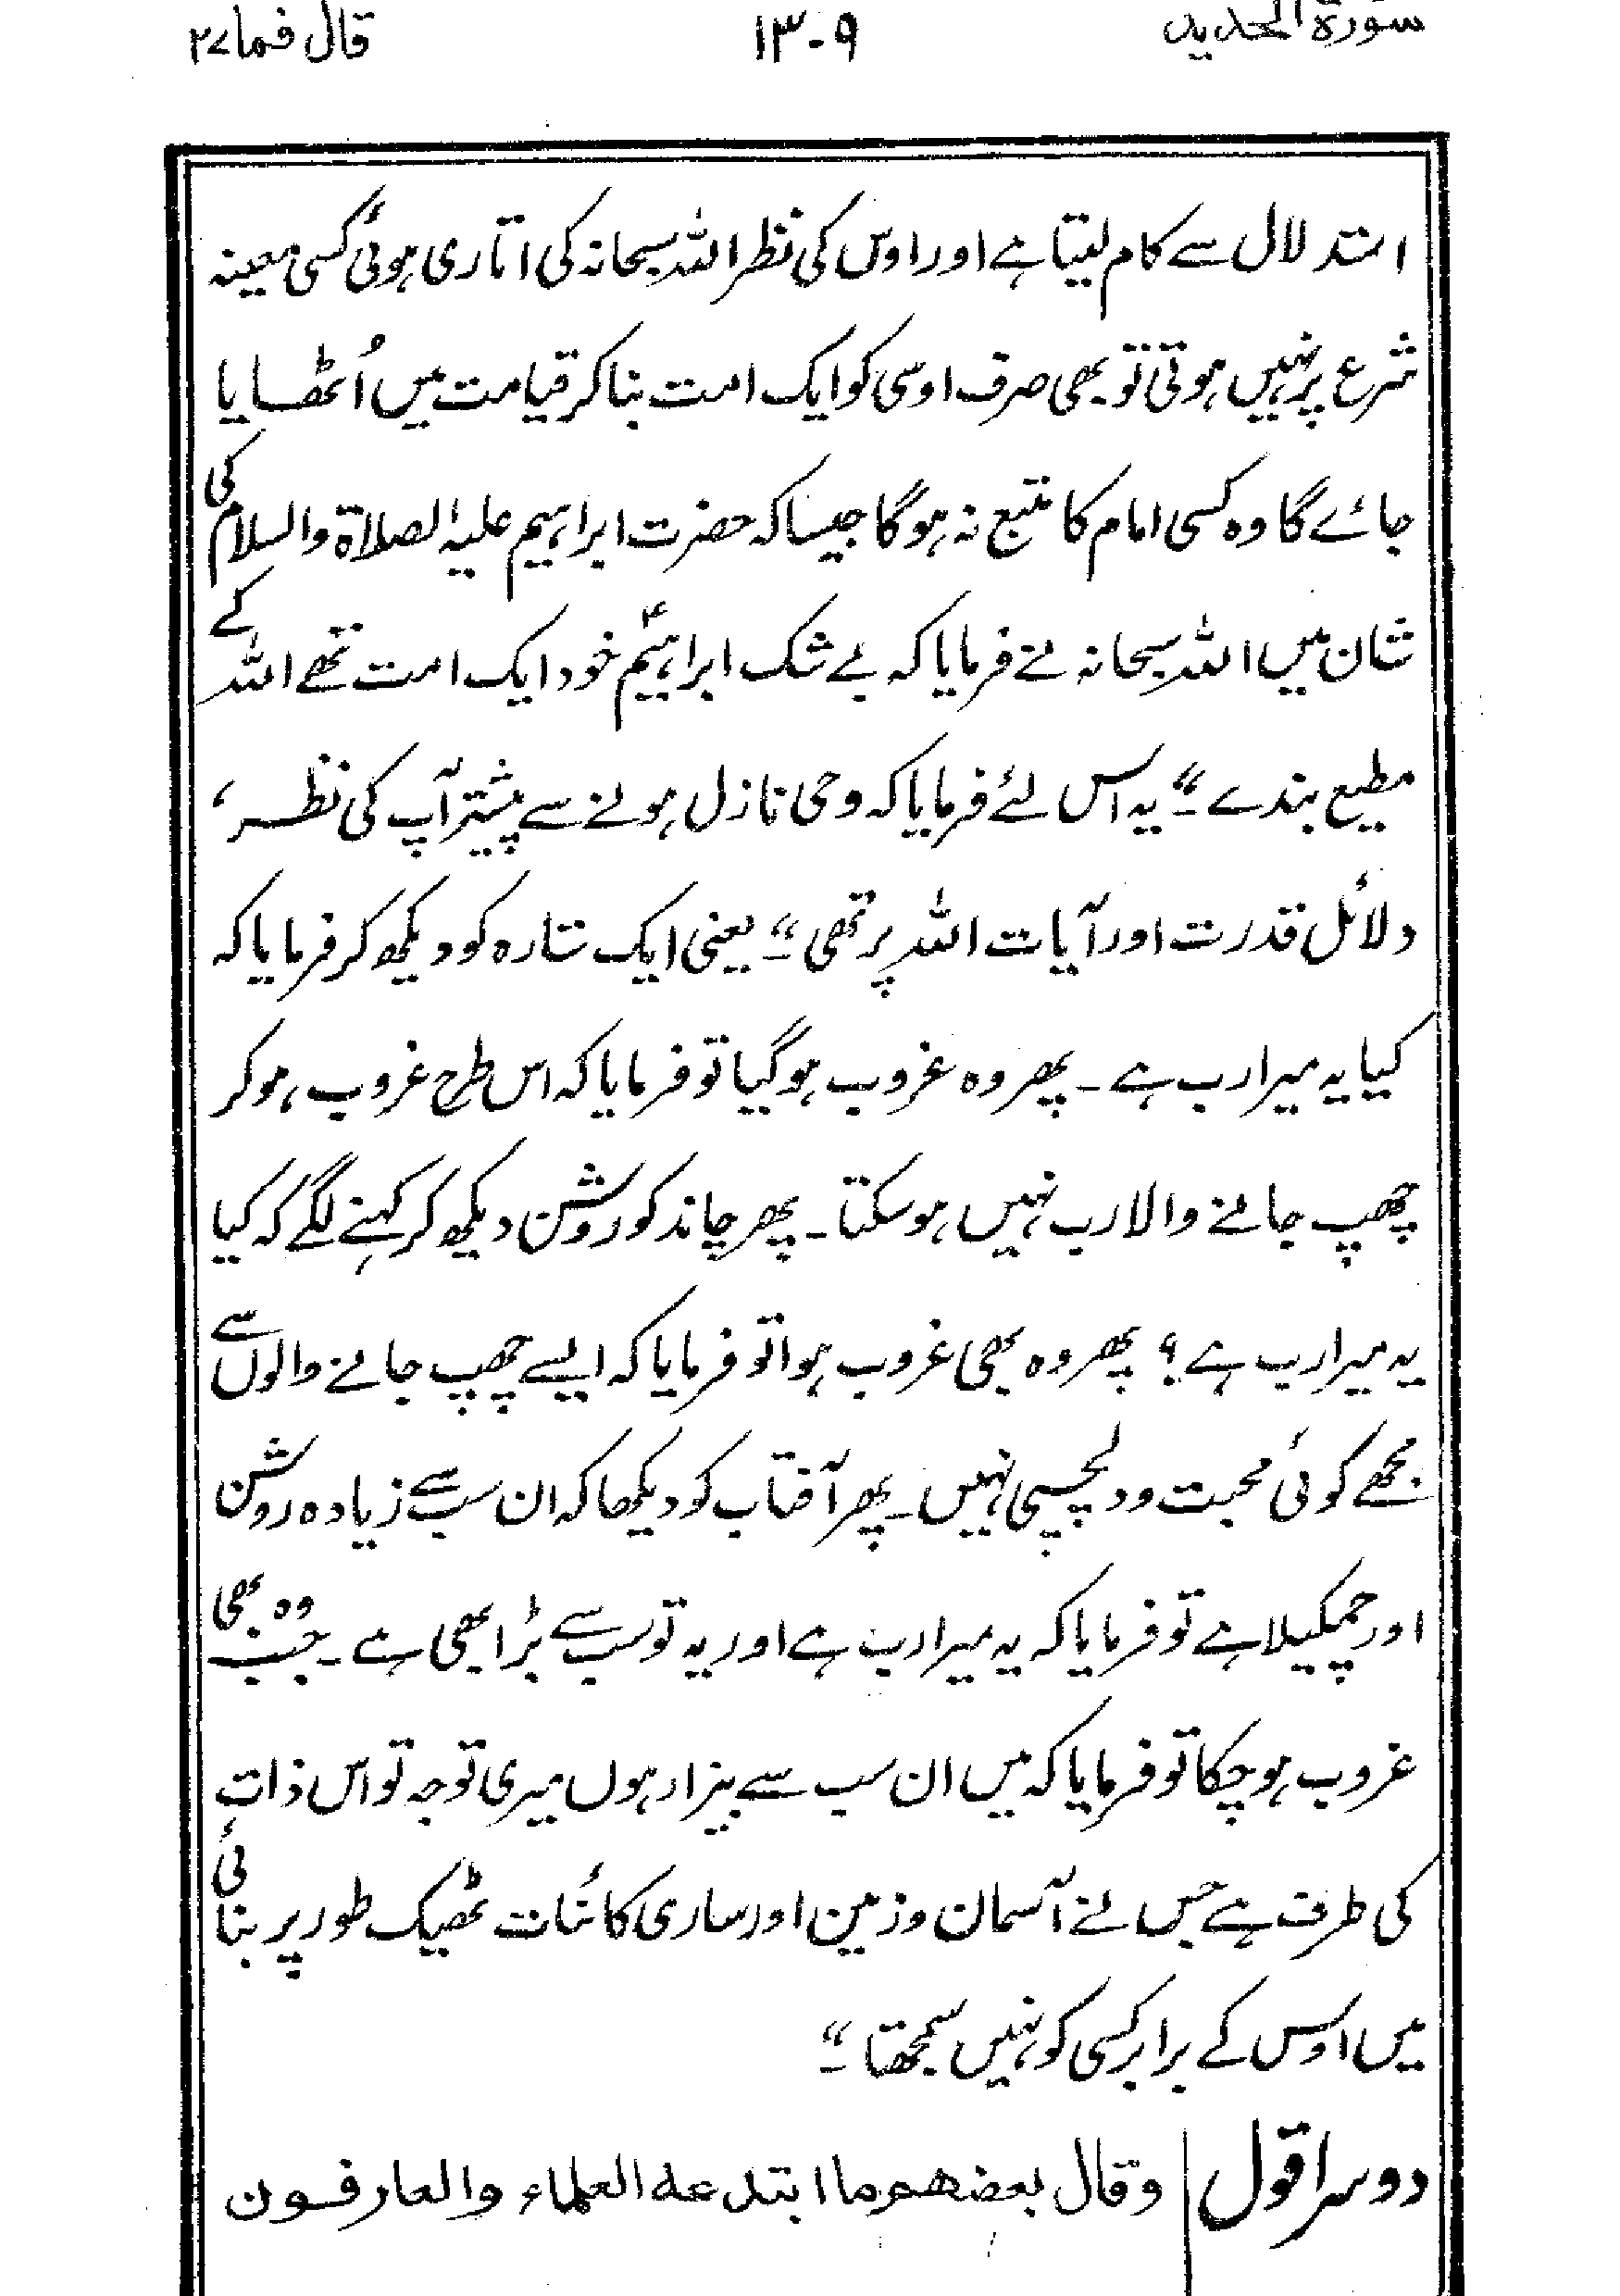 سورة الحدید ۱۳۰۹ قال فما ۲۷
استدلال سے کام لیتا ہے اور اوس کی نظر اللہ سبحانہ کی اتاری ہوئی کسی معینہ
شرع پر نہیں ہوتی تو بھی صرف اوسی کو ایک امت بنا کر قیامت میں اُٹھایا
جائے گا وہ کسی امام کا متبع نہ ہوگا جیسا کہ حضرت ابراہیم علیہ الصلاۃ والسلام کی
شان میں اللہ سبحانہ نے فرمایا کہ بے شک ابراہیمؑ خود ایک امت تھے اللہ کے
مطیع بندے ۔“ یہ اس لئے فرمایا کہ وحی نازل ہونے سے پیشتر آپ کی نظر ،
دلائل قدرت اور آیات اللہ پر تھی ۔“ یعنی ایک ستارہ کو دیکھ کر فرمایا کہ
کیا یہ میرا رب ہے ۔ پھر وہ غروب ہوگیا تو فرمایا کہ اس طرح غروب ہوکر
چھپ جانے والا رب نہیں ہوسکتا ۔ پھر چاند کو روشن دیکھ کر کہنے لگے کہ کیا
یہ میرا رب ہے ؟ پھر وہ بھی غروب ہوا تو فرمایا کہ ایسے چھپ جانے والوں سے
مجھے کوئی محبت و دلچسپی نہیں ۔ پھر آفتاب کو دیکھا کہ ان سب سے زیادہ روشن
اور چمکیلا ہے تو فرمایا کہ یہ میرا رب ہے اور یہ تو سب سے بڑا بھی ہے ۔ جب وہ بھی
غروب ہوچکا تو فرمایا کہ میں ان سب سے بیزار ہوں میری توجہ تو اس ذات
کی طرف ہے جس نے آسمان و زمین اور ساری کائنات ٹھیک طور پر بنائی
میں اوس کے برابر کسی کو نہیں سمجھتا ۔“
دوسرا قول | وقال بعضهم ما ابتدعه العلماء والعارفون